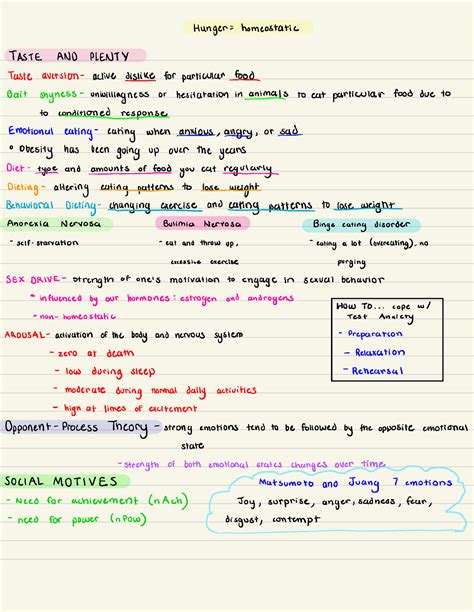 Hunger = homeostatic
TASTE AND PLENTY
Taste aversion- active dislike for particular food
Bait shyness- unwillingness or hesitatation in animals to eat particular food due to
to conditioned response
Emotional eating- eating when anxious, angry, or sad
* Obesity has been going up over the years
Diet- type and amounts of food you eat regularly
Dieting- altering eating patterns to lose weight
Behavioral Dieting- changing exercise and eating patterns to lose weight
Anorexia Nervosa
- self-starvation
Bulimia Nervosa
- eat and throw up,
excessive exercise
Binge eating disorder
- eating a lot (overeating), no
purging
SEX DRIVE- strength of one's motivation to engage in sexual behavior
* influenced by our hormones: estrogen and androgens
- non-homeostatic
HOW TO... cope w/
Test Anxiety
- Preparation
- Relaxation
- Rehearsal
AROUSAL- activation of the body and nervous system
- zero at death
- low during sleep
- moderate during normal daily activities
- high at times of excitement
Opponent-Process Theory - strong emotions tend to be followed by the opposite emotional
state
- strength of both emotional states changes over time
SOCIAL MOTIVES
- Need for achievement (nAch)
- need for power (nPow)
Matsumoto and Juang 7 emotions
Joy, surprise, anger, sadness, fear,
disgust, contempt